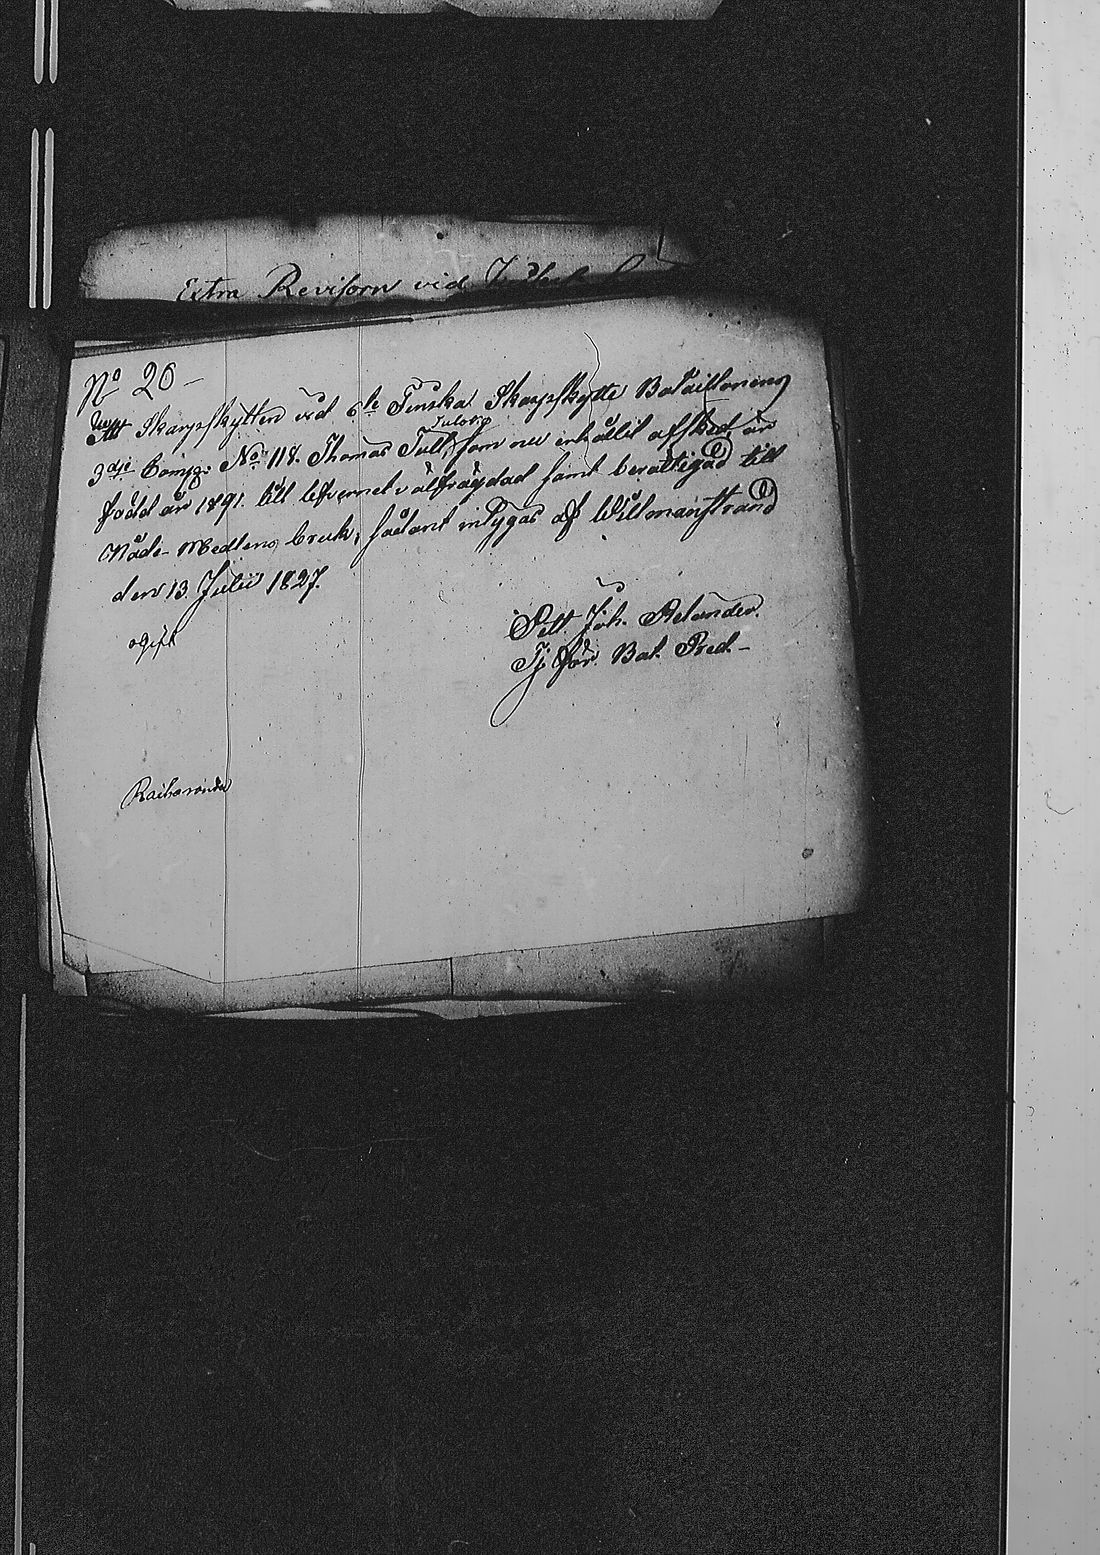 Extra Revisorn vid
No 20 –
Att Skarpskytten vid 6te Finska Skarpskytte Bataillonens
Tulo
3dje Comp: No 118. Thomas Tull, som nu erhållit afsked är
född år 1891. till lefvernet välfrägdad samt berättigad till
Nåde-Medlens bruk, sådant intygas af Willmanstrand
den 13 Julii 1827.
ogift
Pett. Joh. Relander.
Tj. för. Bat. Pred. –